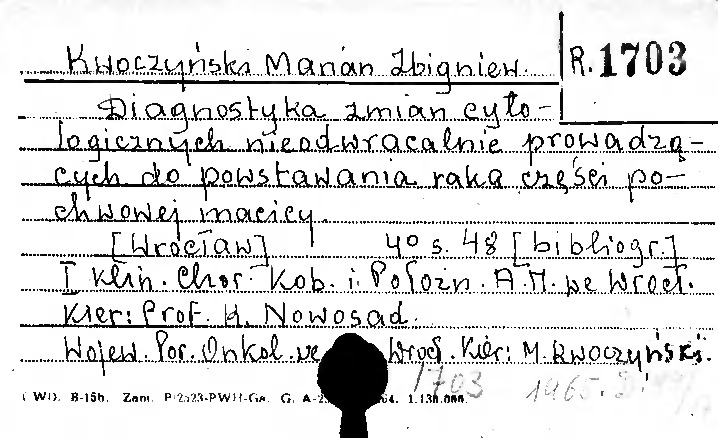 Kwoczyński Marian Zbigniew. R. 1703
Diagnostyka zmian cyto-
logicznych nieodwracalnie prowadzą-
cych do powstawania raka części po-
chwowej macicy.
[Wrocław] 4° s. 48 [bibliogr.]
I Klin. Chor. Kob. i Położn. A.M. we Wrocł.
Kier: Prof. K. Nowosad.
Wojew. Por. Onkol. we Wrocł. Kier: M. Kwoczyński.
1703 1965.
(WD. B-15b. Zam. G. A-2 64. 1.130.000.